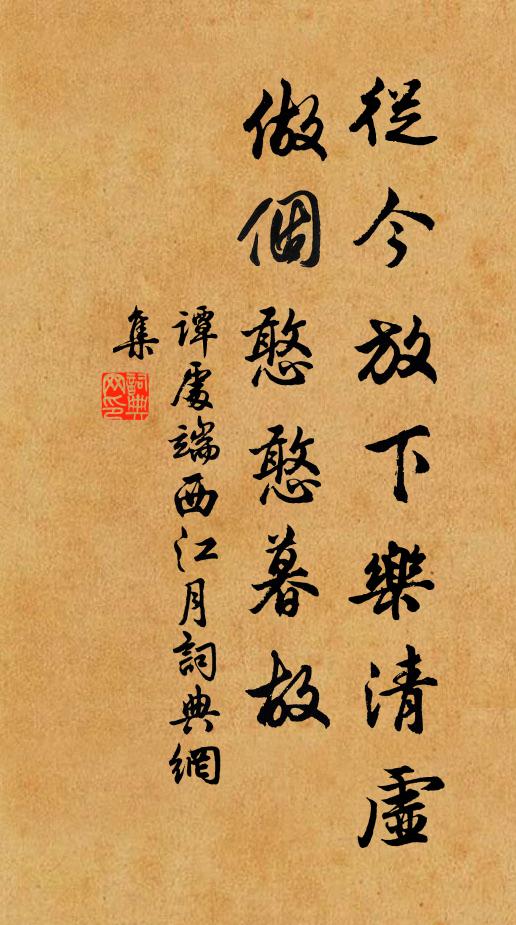 從今放下樂清虛
做個憨憨暮故
譚處端西江月詞典網
集
詞典網印